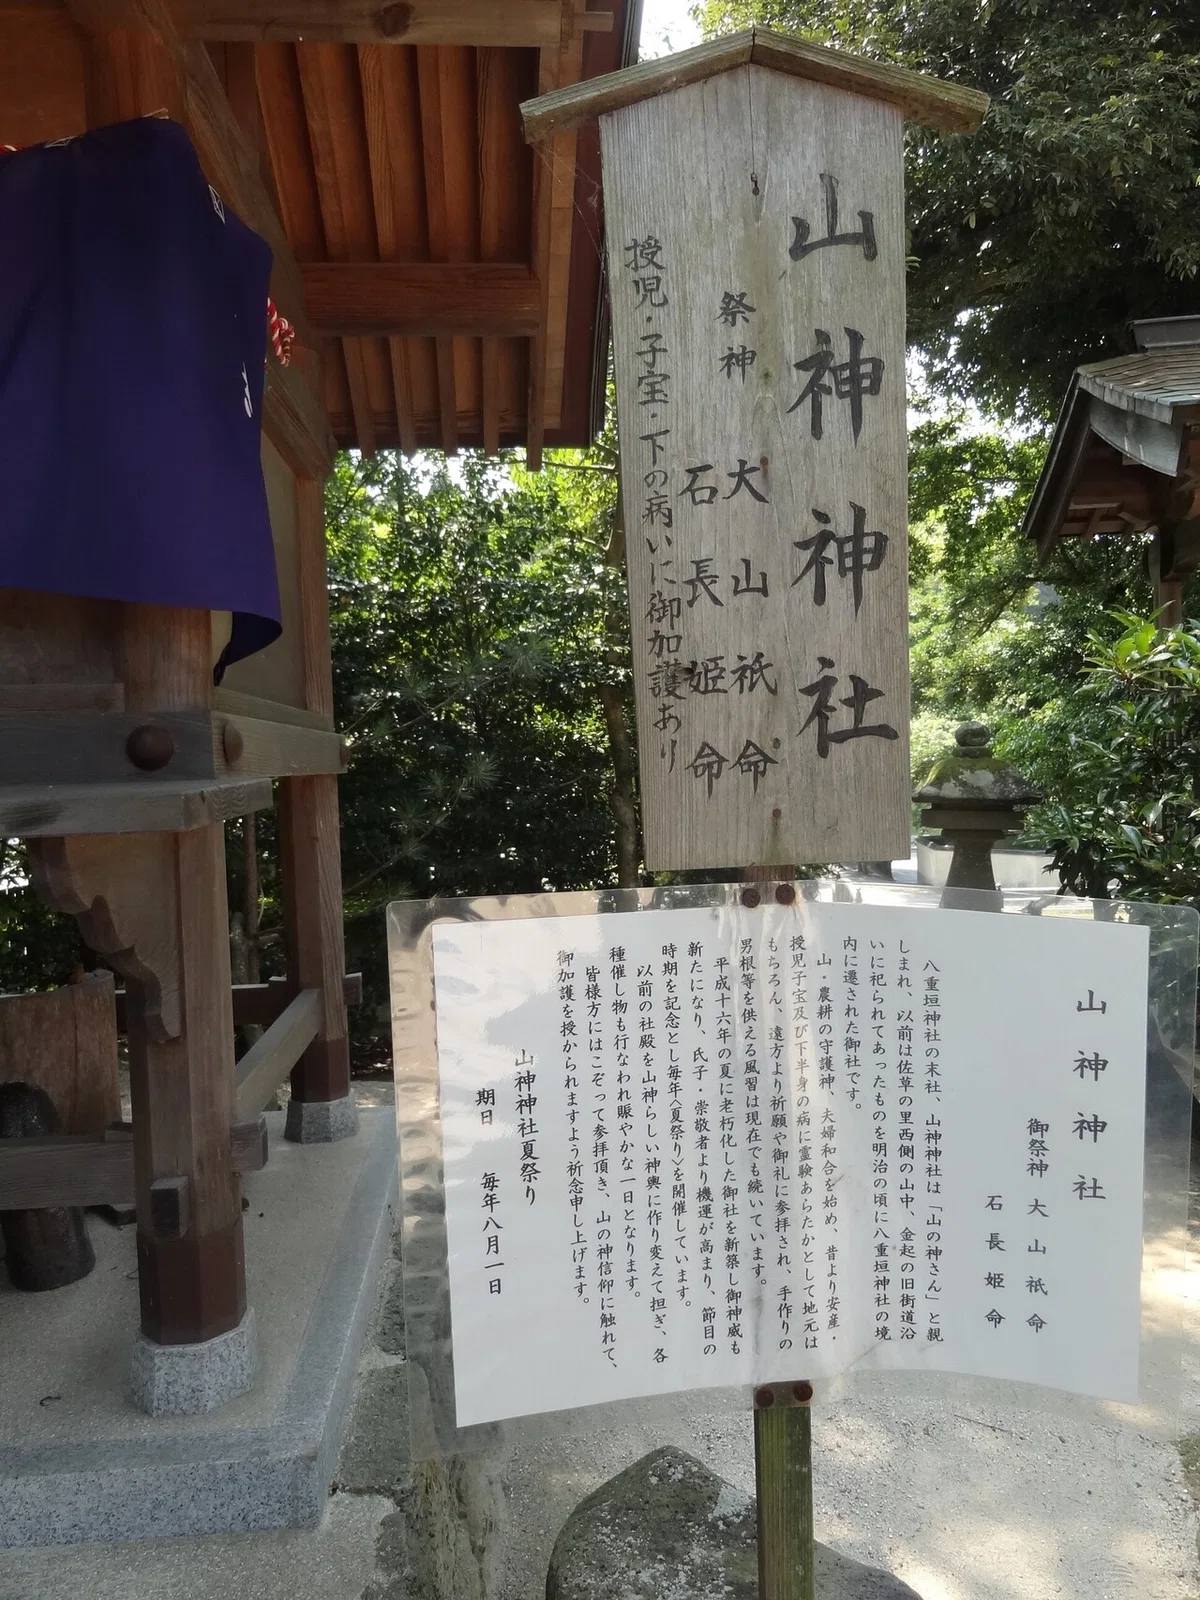 山神神社
祭神
大山祇命
石長姫命
授児・子宝・下の病いに御加護あり
山神神社
御祭神 大山祇命
石長姫命
八重垣神社の末社、山神神社は「山の神さん」と親
しまれ、以前は佐草の里西側の山中、金起の旧街道沿
いに祀られてあったものを明治の頃に八重垣神社の境
内に遷された御社です。
山・農耕の守護神、夫婦和合を始め、昔より安産・
授児子宝及び下半身の病に霊験あらたかとして地元は
もちろん、遠方より祈願や御礼に参拝され、手作りの
男根等を供える風習は現在でも続いています。
平成十六年の夏に老朽化した御社を新築し御神威も
新たになり、氏子・崇敬者より機運が高まり、節目の
時期を記念とし毎年〈夏祭り〉を開催しています。
以前の社殿を山神らしい神輿に作り変えて担ぎ、各
種催し物も行なわれ賑やかな一日となります。
皆様方にはこぞって参拝頂き、山の神信仰に触れて、
御加護を授かられますよう祈念申し上げます。
山神神社夏祭り
期日 毎年八月一日